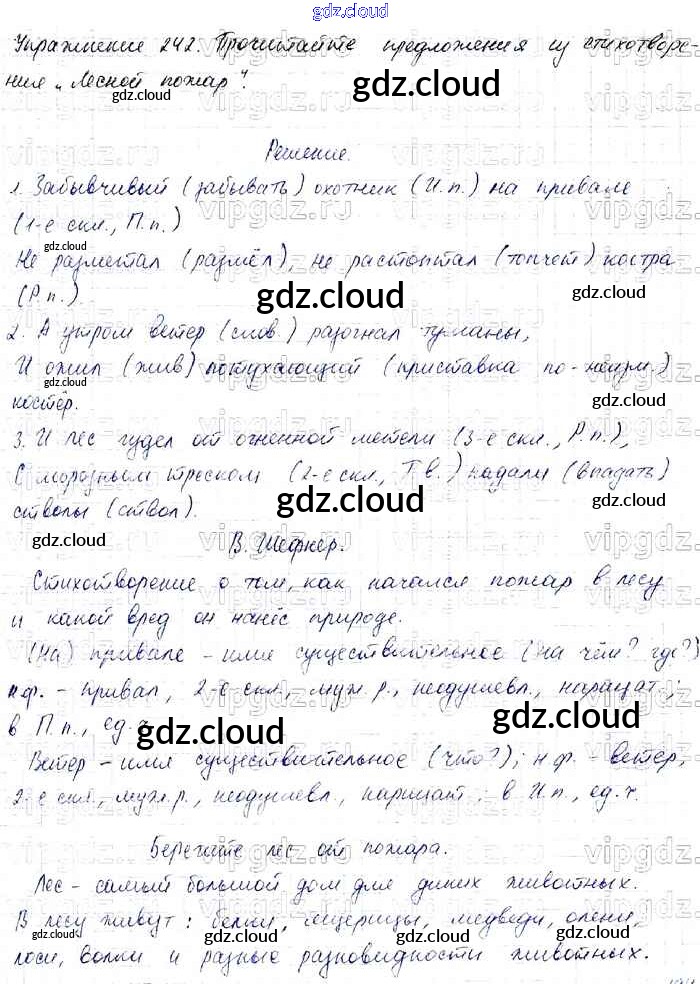 gdz.cloud
Упражнение 242. Прочитайте предложения из стихотворе-
ния "Лесной пожар".
gdz.cloud
gdz.cloud
Решение.
1. Забывчивый (забывать) охотник (И.п.) на привале
(1-е скл., П.п.)
gdz.cloud
Не разметал (размёл), не растоптал (топчет) костра
(Р.п.).
gdz.cloud
gdz.cloud
2. А утром ветер (слов.) разогнал туманы,
И ожил (жив) потухающий (приставка по-неизм.)
костёр.
gdz.cloud
3. И лес гудел от огненной метели (3-е скл., Р.п.),
С морозным треском (2-е скл., Тв.) падали (впадать)
стволы (ствол).
gdz.cloud
gdz.cloud
gdz.cloud
В. Шефнер.
Стихотворение о том, как начался пожар в лесу
и какой вред он нанёс природе.
(На) привале – имя существительное (на чём? где?)
н.ф. – привал, 2-е скл., муж. р., неодушевл., нарицат.;
в П.п., ед. ч.
gdz.cloud
gdz.cloud
Ветер – имя существительное (что?); н.ф. – ветер,
2-е скл., муж. р., неодушевл., нарицат.; в И.п., ед. ч.
Берегите лес от пожара.
Лес – самый большой дом для диких животных.
В лесу живут: белки, ящерицы, медведи, олени,
gdz.cloud
gdz.cloud
лоси, волки и разные разновидности животных.
vipgdz.ru